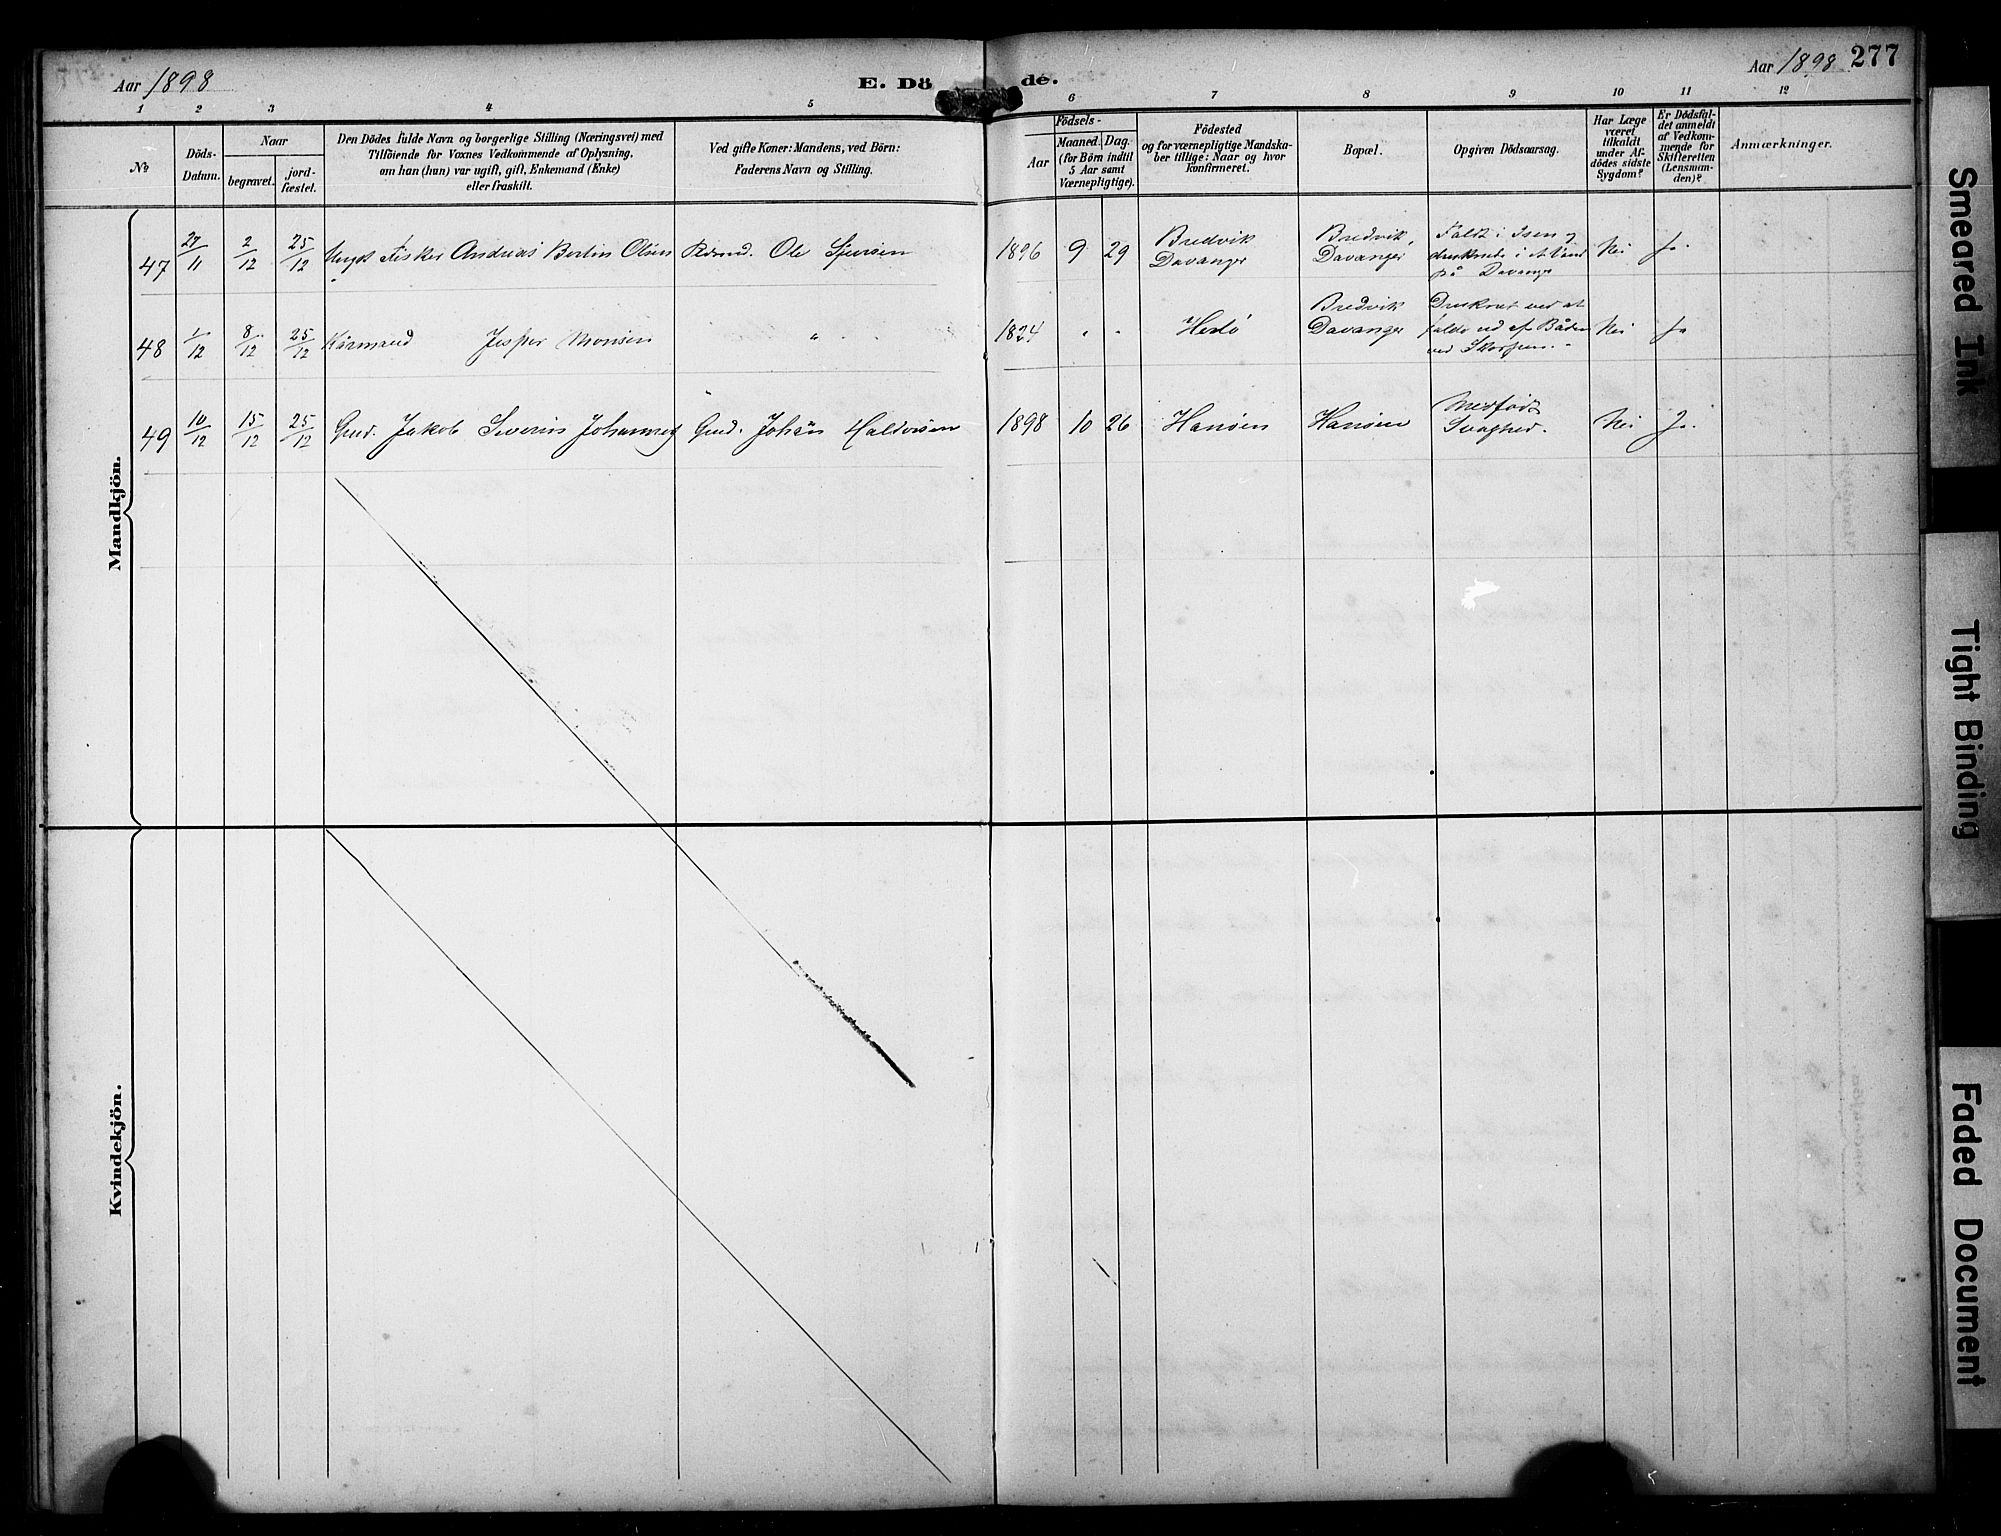 Aar 1898
E. Dö de.
Aar 1898
277
1 2 3 4 5 6 7 8 9 10 11 12
No
Döds-
Datum.
Naar
begravet.
jord-
fæstet.
Den Dödes fulde Navn og borgerlige Stilling (Næringsvei) med
Tilföiende for Voxnes Vedkommende af Oplysning,
om han (hun) var ugift, gift, Enkemand (Enke)
eller fraskilt.
Ved gifte Koner: Mandens, ved Börn:
Faderens Navn og Stilling.
Födsels-
Aar
Maaned.
Dag.
(for Börn indtil
5 Aar samt
Værnepligtige).
Födested
og for værnepligtige Mandska-
ber tillige: Naar og hvor
konfirmeret.
Bopæl.
Opgiven Dödsaarsag.
Har Læge
været
tilkaldt
under Af-
dödes sidste
Sygdom?
Er Dödsfal-
det anmeldt
af Vedkom-
mende for
Skifteretten
(Lensman-
den)?
Anmærkninger.
Mandkjön.
47 27/11 2/12 25/12 Ungk Fisker Andreas Bertin Olsen Ole 9 29 Bredvik Davanger Bredvik, Davanger Faldt i Isen og druknede i et Vand på Davanger Nei Ja.
48 1/12 8/12 25/12 Kårmand Jesper Monsen " 1824 " " Herlö Bredvik Davanger Druknet ved at falde ud af Båden ved Nei Ja
49 10/12 15/12 25/12 Gmd. Jakob Severin Gmd. Johan Haldorsen 1898 10 26 Hanöen Hanöen Medfödt Svaghed. Nei Ja.
Kvindekjön.
Smeared Ink
Tight Binding
Faded Document